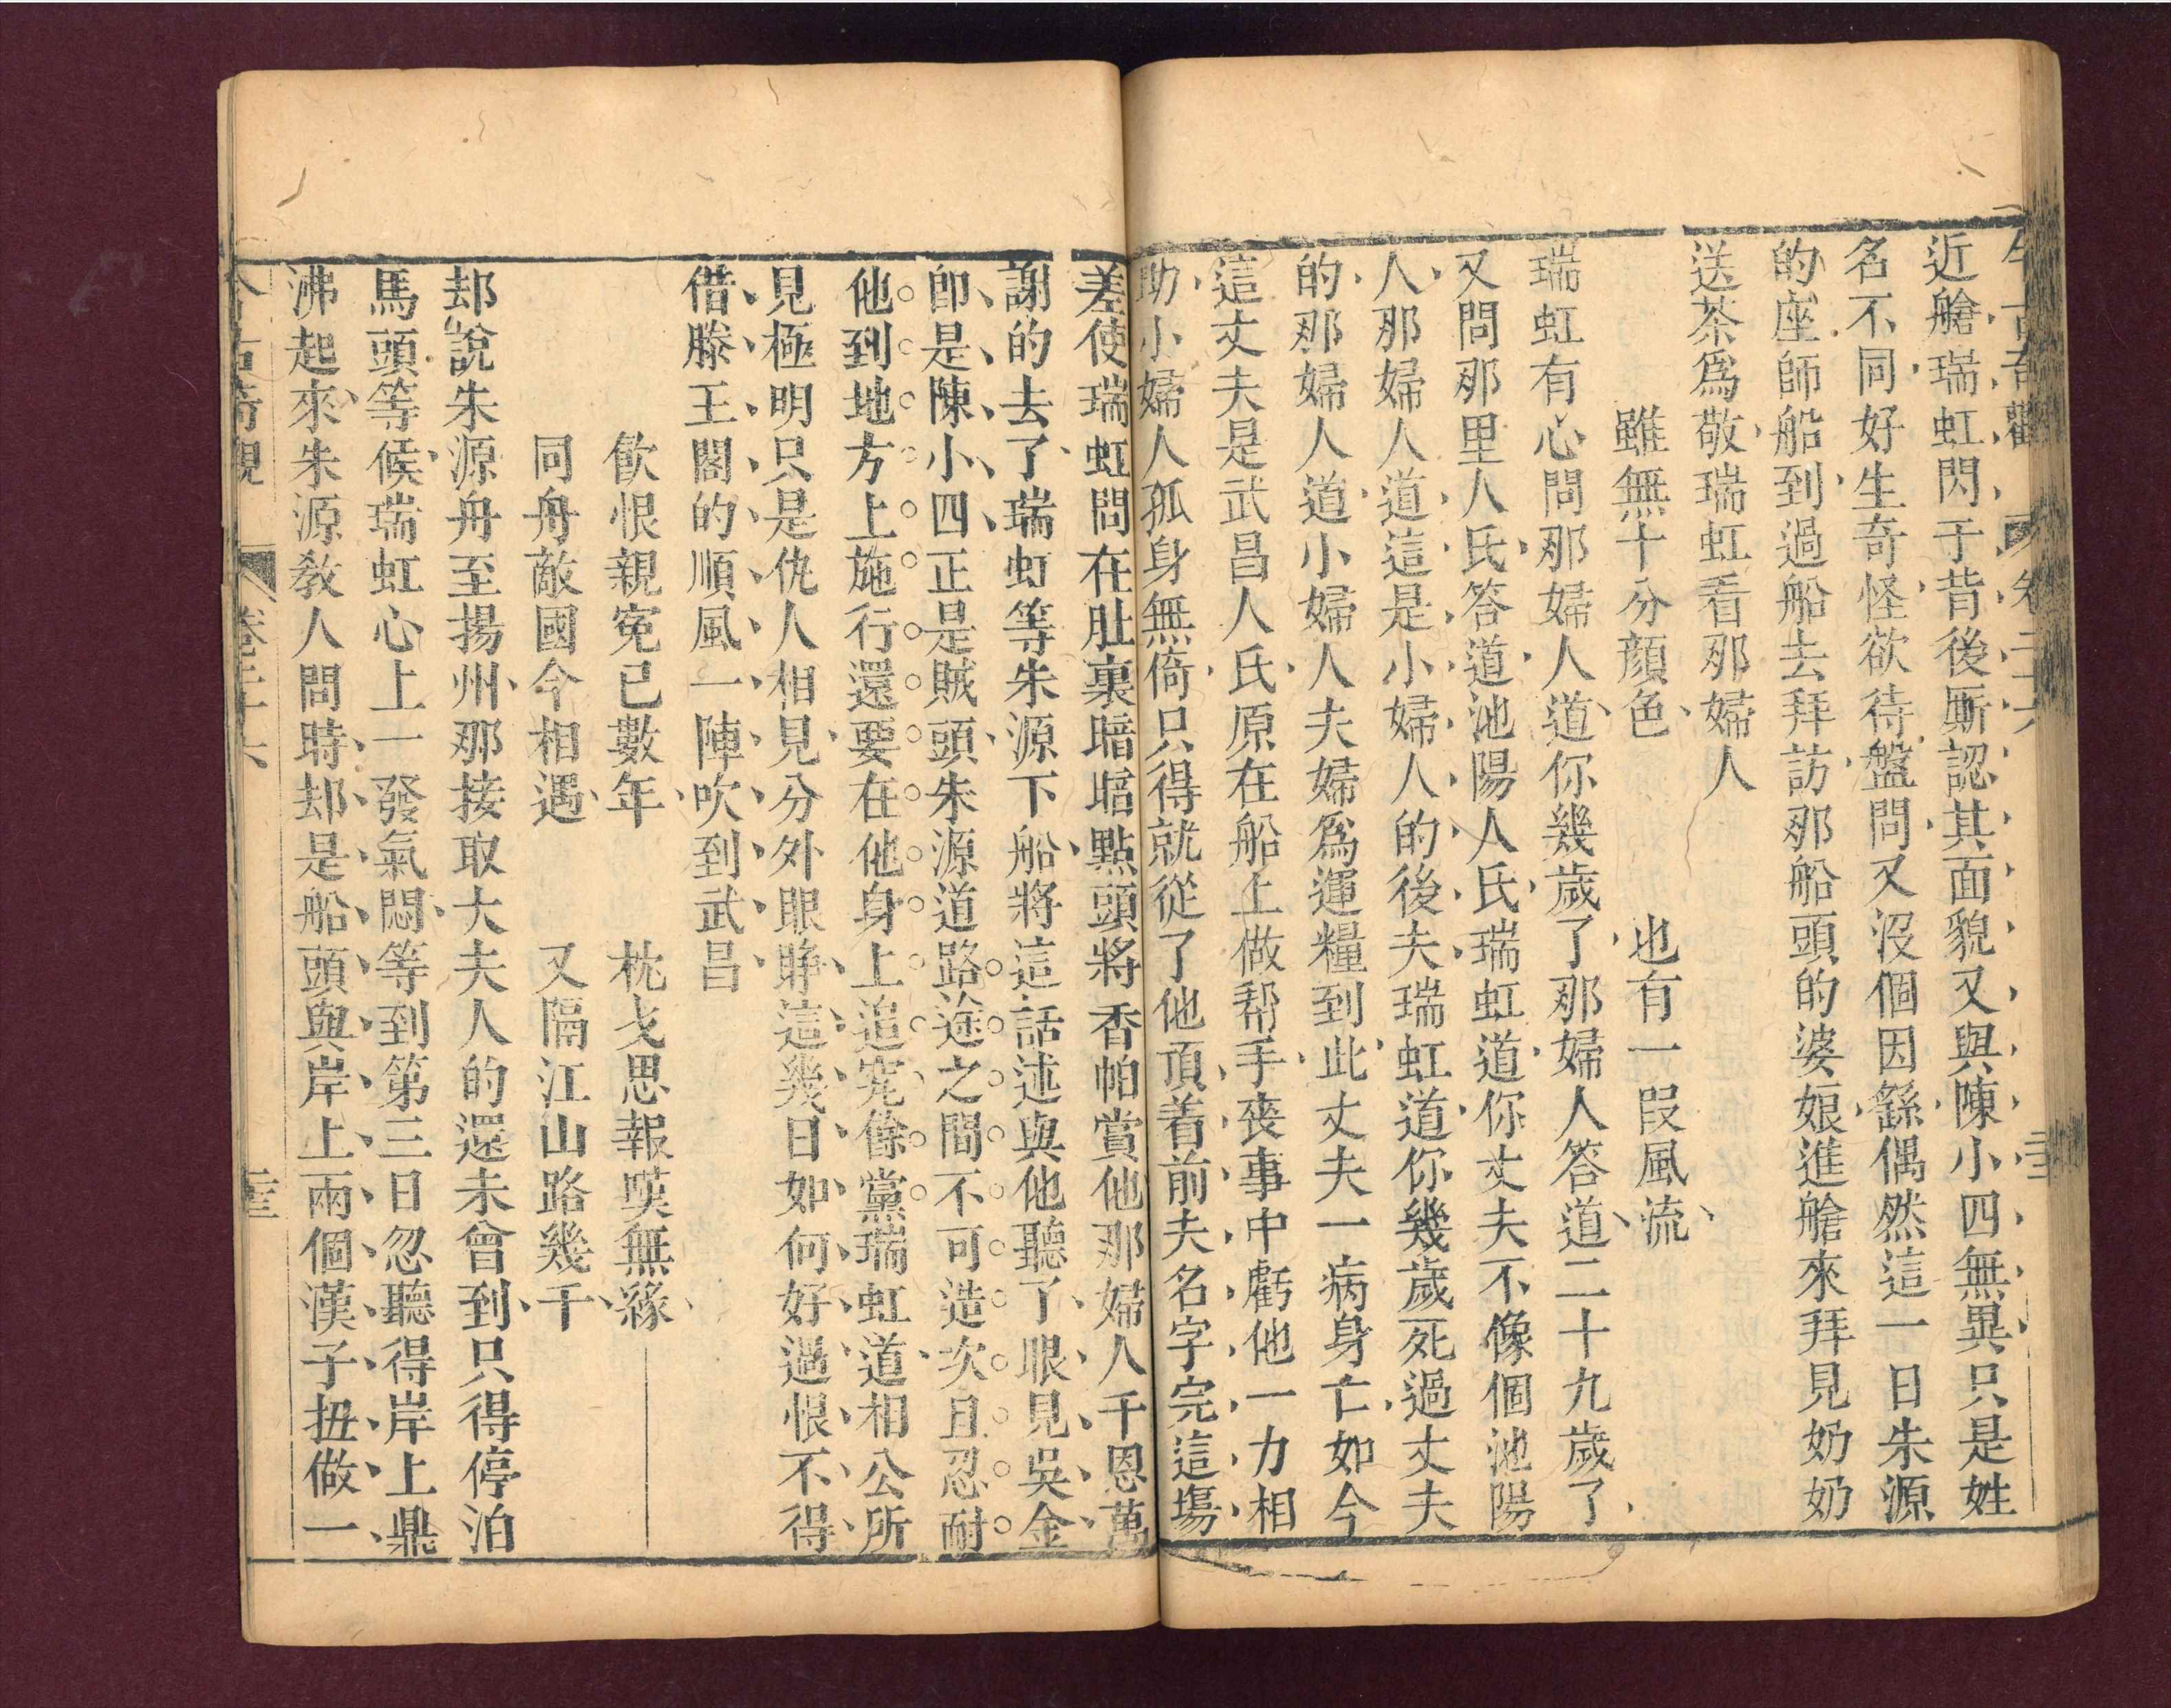 今古奇觀　卷二十六
近艙瑞虹閃于背後厮認其面貌又與陳小四無異只是姓
名不同好生奇怪欲待盤問又沒個因繇偶然這一日朱源
的座師船到過船去拜訪那船頭的婆娘進艙來拜見奶奶
送茶爲敬瑞虹看那婦人
雖無十分顔色　也有一段風流
瑞虹有心問那婦人道你幾歲了那婦人答道二十九歲了
又問那里人氏答道池陽人氏瑞虹道你丈夫不像個池陽
人那婦人道這是小婦人的後夫瑞虹道你幾歲死過丈夫
的那婦人道小婦人夫婦爲運糧到此丈夫一病身亡如今
這丈夫是武昌人氏原在船上做帮手喪事中虧他一力相
助小婦人孤身無倚只得就從了他頂着前夫名字完這塲
差使瑞虹問在肚裏暗暗點頭將香帕賞他那婦人千恩萬
謝的去了瑞虹等朱源下船將這話述與他聽了眼見吳金
即是陳小四正是賊頭朱源道路途之間不可造次且忍耐
他到地方上施行還要在他身上追究餘黨瑞虹道相公所
見極明只是仇人相見分外眼睜這幾日如何好過恨不得
借滕王閣的順風一陣吹到武昌
飲恨親寃已數年　枕戈思報嘆無緣
同舟敵國今相遇　又隔江山路幾千
却說朱源舟至揚州那接取大夫人的還未曾到只得停泊
馬頭等候瑞虹心上一發氣悶等到第三日忽聽得岸上鼎
沸起來朱源教人問時却是船頭與岸上兩個漢子扭做一
今古奇觀　卷二十六